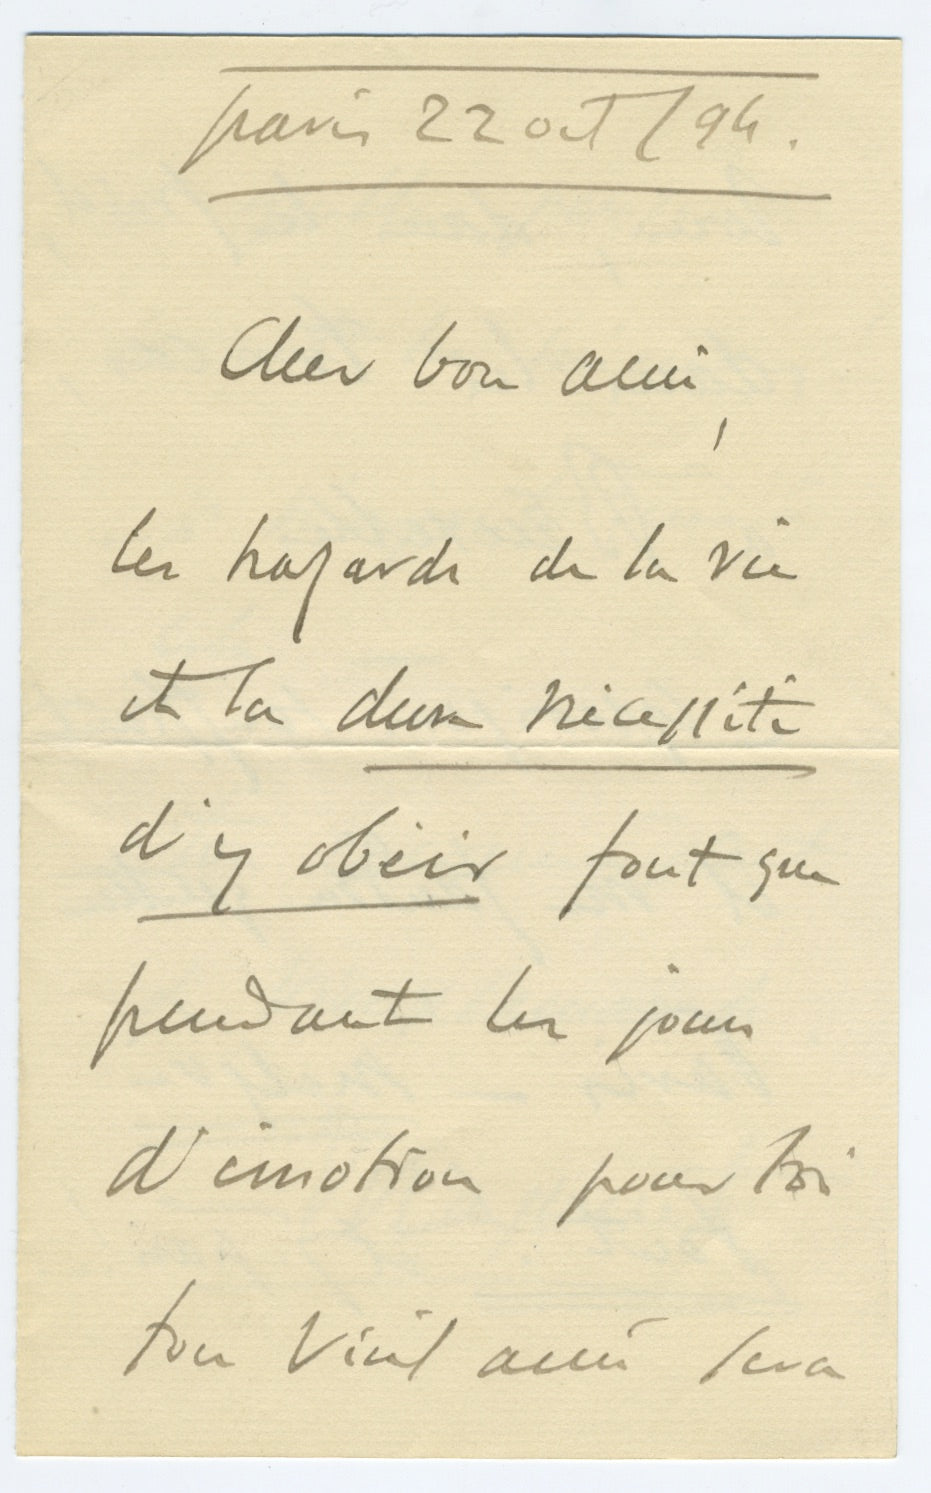 paris 22 oct /94.
Cher bon ami,
les hazards de la vie
et la dure nécessité
d'y obéir font que
pendant les jours
d'émotion pour toi
ton vieil ami sera